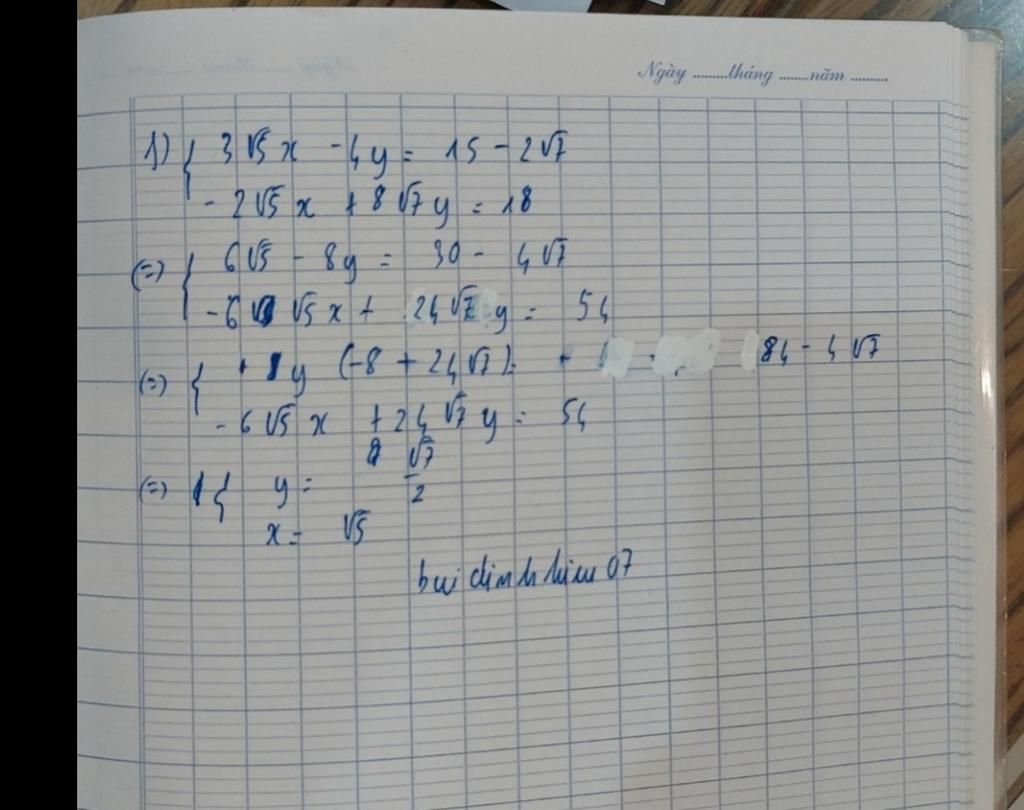 Ngày .........tháng ........năm ..........
1) { 3√5x - 4y = 15 - 2√7
- 2√5 x + 8√7 y = 18
(=) { 6√5 - 8y = 30 - 4√7
- 6 √5 x + 24√7 y = 54
(=) { y (-8 + 24√7) 84 - 4√7
- 6√5 x + 24√7 y = 54
(=) { y = √7/2
x = √5
bui dinh hieu 07